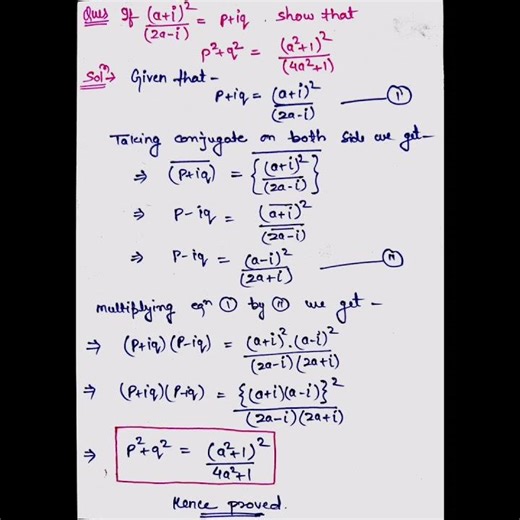 Ques If (a+i)²/(2a-i) = p+iq. show that
p²+q² = (a²+1)²/(4a²+1)
Solⁿ→ Given that -
p+iq = (a+i)²/(2a-i) —— (i)
Taking conjugate on both side we get-
⇒ \overline{(p+iq)} = \overline{{(a+i)²/(2a-i)}}
⇒ p-iq = (\overline{a+i})²/(\overline{2a-i})
⇒ p-iq = (a-i)²/(2a+i) —— (ii)
multiplying eqⁿ (i) by (ii) we get -
⇒ (p+iq)(p-iq) = (a+i)².(a-i)²/(2a-i)(2a+i)
⇒ (p+iq)(p-iq) = {(a+i)(a-i)}²/(2a-i)(2a+i)
⇒ p²+q² = (a²+1)²/4a²+1
Hence proved.